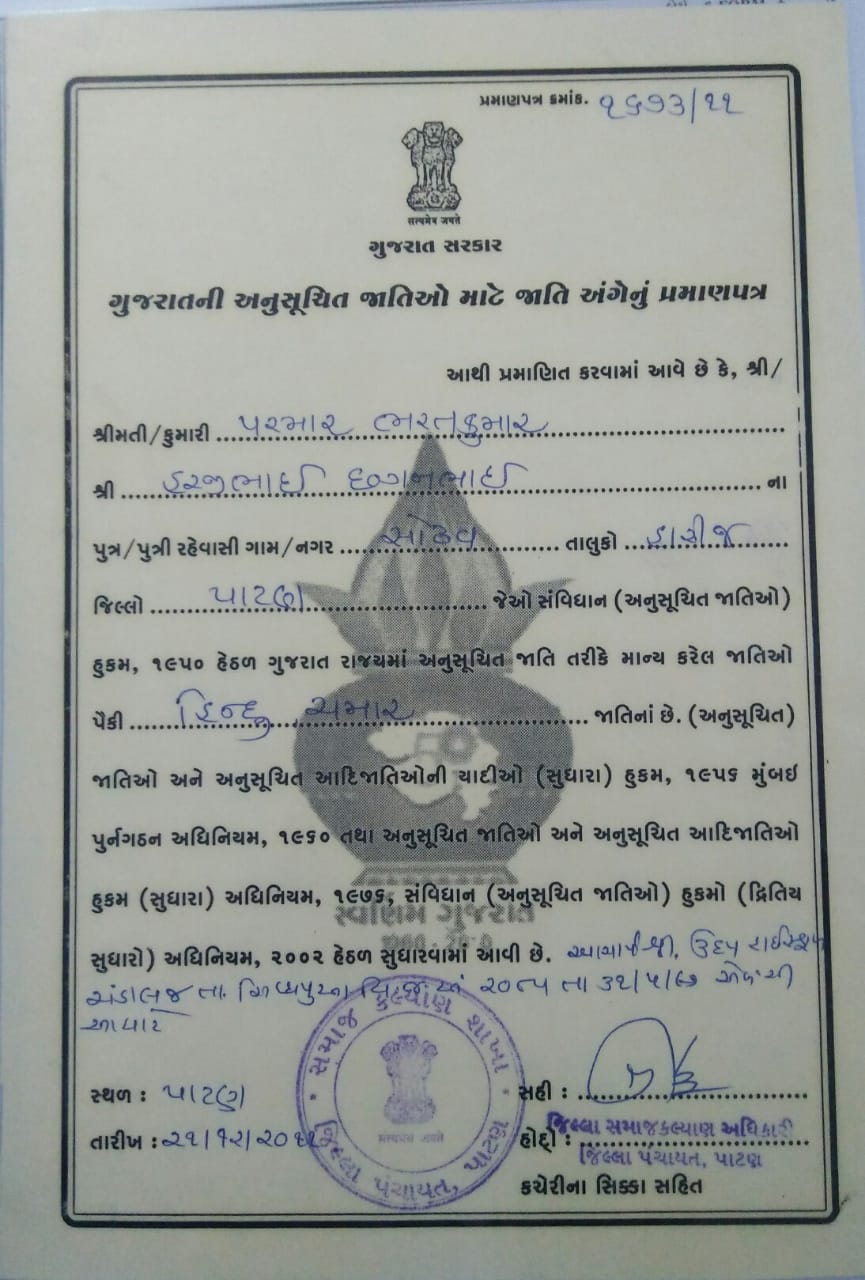 પ્રમાણપત્ર ક્રમાંક. ૧૬૭૩/૧૧
सत्यमेव जयते
ગુજરાત સરકાર
ગુજરાતની અનુસૂચિત જાતિઓ માટે જાતિ અંગેનું પ્રમાણપત્ર
આથી પ્રમાણિત કરવામાં આવે છે કે, શ્રી/
શ્રીમતી/કુમારી પરમાર ભરતકુમાર
શ્રી હરજીભાઈ છગનભાઈ ના
પુત્ર/પુત્રી રહેવાસી ગામ/નગર તાલુકો હારીજ
જિલ્લો પાટણ જેઓ સંવિધાન (અનુસૂચિત જાતિઓ)
હુકમ, ૧૯૫૦ હેઠળ ગુજરાત રાજ્યમાં અનુસૂચિત જાતિ તરીકે માન્ય કરેલ જાતિઓ
પૈકી હિન્દુ ચમાર જાતિનાં છે. (અનુસૂચિત)
જાતિઓ અને અનુસૂચિત આદિજાતિઓની યાદીઓ (સુધારા) હુકમ, ૧૯૫૬ મુંબઇ
પુર્નગઠન અધિનિયમ, ૧૯૬૦ તથા અનુસૂચિત જાતિઓ અને અનુસૂચિત આદિજાતિઓ
હુકમ (સુધારા) અધિનિયમ, ૧૯૭૬, સંવિધાન (અનુસૂચિત જાતિઓ) હુકમો (દ્રિતિય
સ્વર્ણિમ ગુજરાત
સુધારો) અધિનિયમ, ૨૦૦૨ હેઠળ સુધારવામાં આવી છે. આચાર્યશ્રી,
તા.
આધારે
સ્થળ : પાટણ
તારીખ : ૨૧/૧૨/૨૦૧૧
સમાજ કલ્યાણ શાખા
જિલ્લા પંચાયત, પાટણ
सत्यमेव जयते
સહી :
હોદ્દો : જિલ્લા સમાજકલ્યાણ અધિકારી
જિલ્લા પંચાયત, પાટણ
કચેરીના સિક્કા સહિત